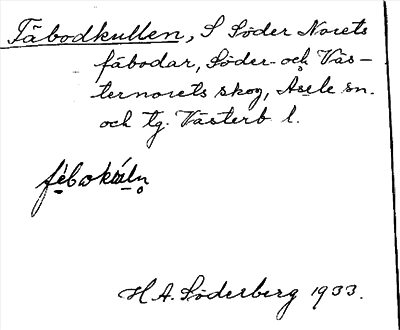 Fäbodkullen, S Söder Norets
fäbodar, Söder- och Väs-
ternorets skog, Åsele sn.
och tg. Västerb l.
H A. Söderberg 1933.